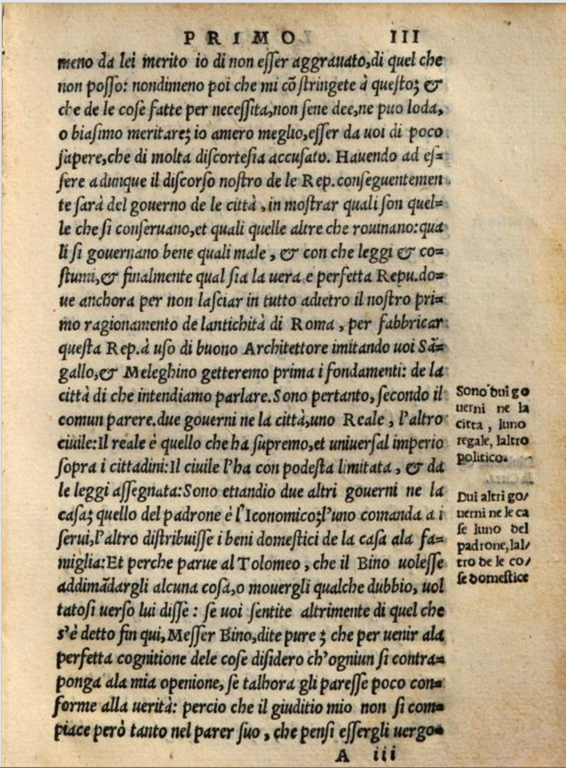 PRIMO III
meno da lei merito io di non eſſer aggrauato,di quel che
non poſſo: nondimeno poi che mi cõ ſtringete à queſto; &
che de le coſe fatte per neceſſita,non ſene dee,ne puo loda,
o biaſimo meritare; io amero meglio,eſſer da uoi di poco
ſapere,che di molta diſcorteſia accuſato. Hauendo ad eſ=
ſere adunque il diſcorſo noſtro de le Rep.conſeguentemen
te ſarà del gouerno de le città ,in moſtrar quali ſon quel=
le che ſi conſeruano,et quali quelle altre che rouinano:qua
li ſi gouernano bene quali male , & con che leggi & co=
ſtumi,& finalmente qual ſia la uera e perfetta Repu.do=
ue anchora per non laſciar in tutto adietro il noſtro pri=
mo ragionamento de lantichità di Roma , per fabbricar
queſta Rep.à uſo di buono Architettore imitando uoi Sã=
gallo,& Meleghino getteremo prima i fondamenti: de la
città di che intendiamo parlare.Sono pertanto,ſecondo il
comun parere.due gouerni ne la città,uno Reale , l'altro
ciuile:Il reale è quello che ha ſupremo,et uniuerſal imperio
ſopra i cittadini:Il ciuile l'ha con podeſta limitata , & da
le leggi aſſegnata:Sono ettandio due altri gouerni ne la
caſa; quello del padrone è l'Iconomico;l'uno comanda a i
ſerui,l'altro diſtribuiſſe i beni domeſtici de la caſa ala fa=
miglia:Et perche parue al Tolomeo , che il Bino uoleſſe
addimãdargli alcuna coſa,o mouergli qualche dubbio, uol
tatoſi uerſo lui diſſe : ſe uoi ſentite altrimente di quel che
s'è detto fin qui,Meſſer Bino,dite pure ; che per uenir ala
perfetta cognitione dele coſe diſidero ch'ogniun ſi contra=
ponga ala mia openione, ſe talhora gli pareſſe poco con=
forme alla uerità: percio che il giuditio mio non ſi com=
piace però tanto nel parer ſuo , che penſi eſſergli uergo=
A iii
Sono dui go
uerni ne la
citta , luno
regale, laltro
politico.
Dui altri go/
uerni ne le ca
ſe luno del
padrone,lal/
tro de le co/
ſe domeſtice